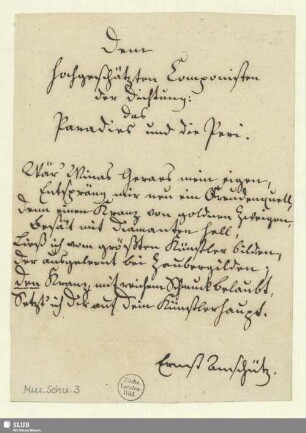 Dem
hochgeschätzten Componisten
der Dichtung:
das
Paradies und die Peri.
Wär' Minas Geraes mein eigen,
Entspräng mir neu ein Freudenquell,
Denn einen Kranz von goldnen Zweigen,
Besät mit Diamanten hell,
Ließ' ich vom größten Künstler bilden,
Der ausgelernt bei Zaubergilden;
Den Kranz mit reichem Schmuck belaubt,
Setzt' ich dir auf dein Künstlerhaupt.
Ernst Anschütz.
Mus. Schu. 3
Sächs.
Landes-
Bibl.
SLUB
Wir führen Wissen.